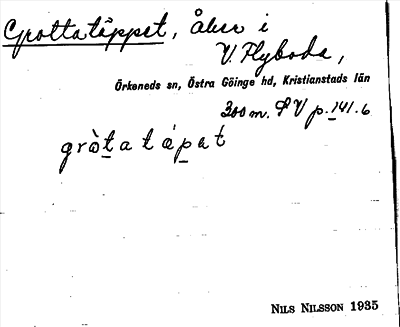 Grottatäppet, Åker i
V. Flyboda,
Örkeneds sn, Östra Göinge hd, Kristianstads län
300 m. S V p. 141. b
grò̱ta tä́pat
NILS NILSSON 1935